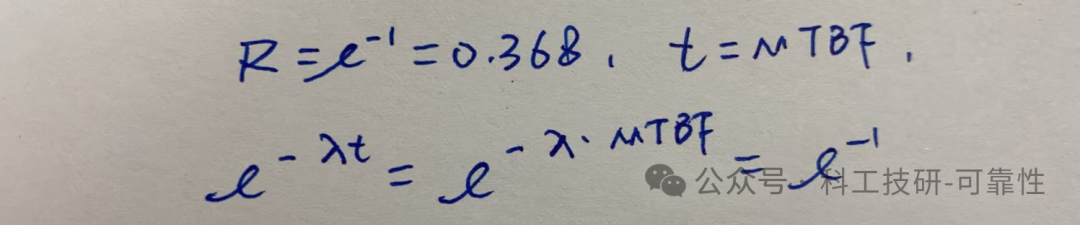 R = e⁻¹ = 0.368, t = MTBF,
e^{-λt} = e^{-λ·MTBF} = e⁻¹
公众号 · 科工技研-可靠性